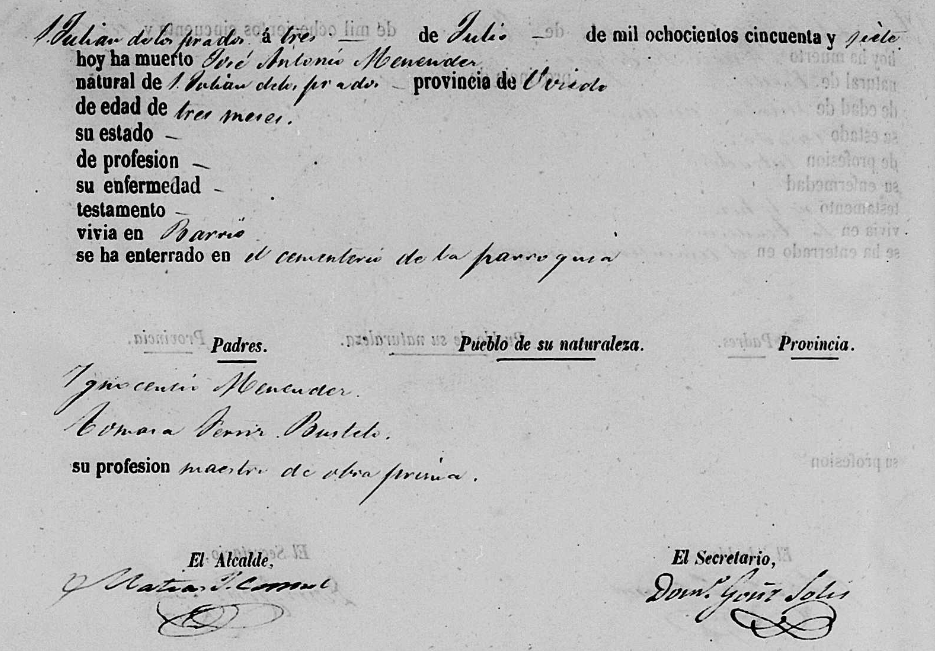 S. Julian de los prados á tres — de Julio — de mil ochocientos cincuenta y siete
hoy ha muerto José Antonio Menendez
natural de S. Julian delos prados — provincia de Oviedo
de edad de tres meses.
su estado —
de profesion —
su enfermedad —
testamento —
vivia en Barrio
se ha enterrado en el cementerio de la parroquia
Padres. Pueblo de su naturaleza. Provincia.
Ygnocencio Menendez.
Tomasa Bustelo.
su profesion maestro de obra prima.
El Alcalde, El Secretario,
Matias Solis